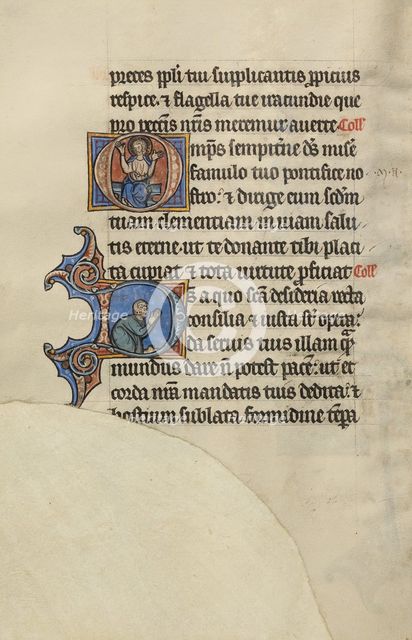 preces ppl̄i tui supplicantis ꝓpicius
respice. ⁊ flagella tue iracundie que
pro peccīs nr̄is meremur auerte. Coll᾿
Omp̄s sempiterne ds̄ miserē
famulo tuo pontifice no
stro: ⁊ dirige eum scd̄m
tuam clementiam in uiam salu
tis eterne: ut te donante tibi placi
ta cupiat ⁊ tota uirtute ꝓficiat Coll᾿
Ds̄ a quo sc̄a desideria recta
consilia ⁊ iusta st̄ opera:
da seruis tuis illam q̄m
mundus dare n̄ potest pacē: ut et
corda nr̄a mandatis tuis dedita: ⁊
hostium sublata formidine tēpa
Heritage Images